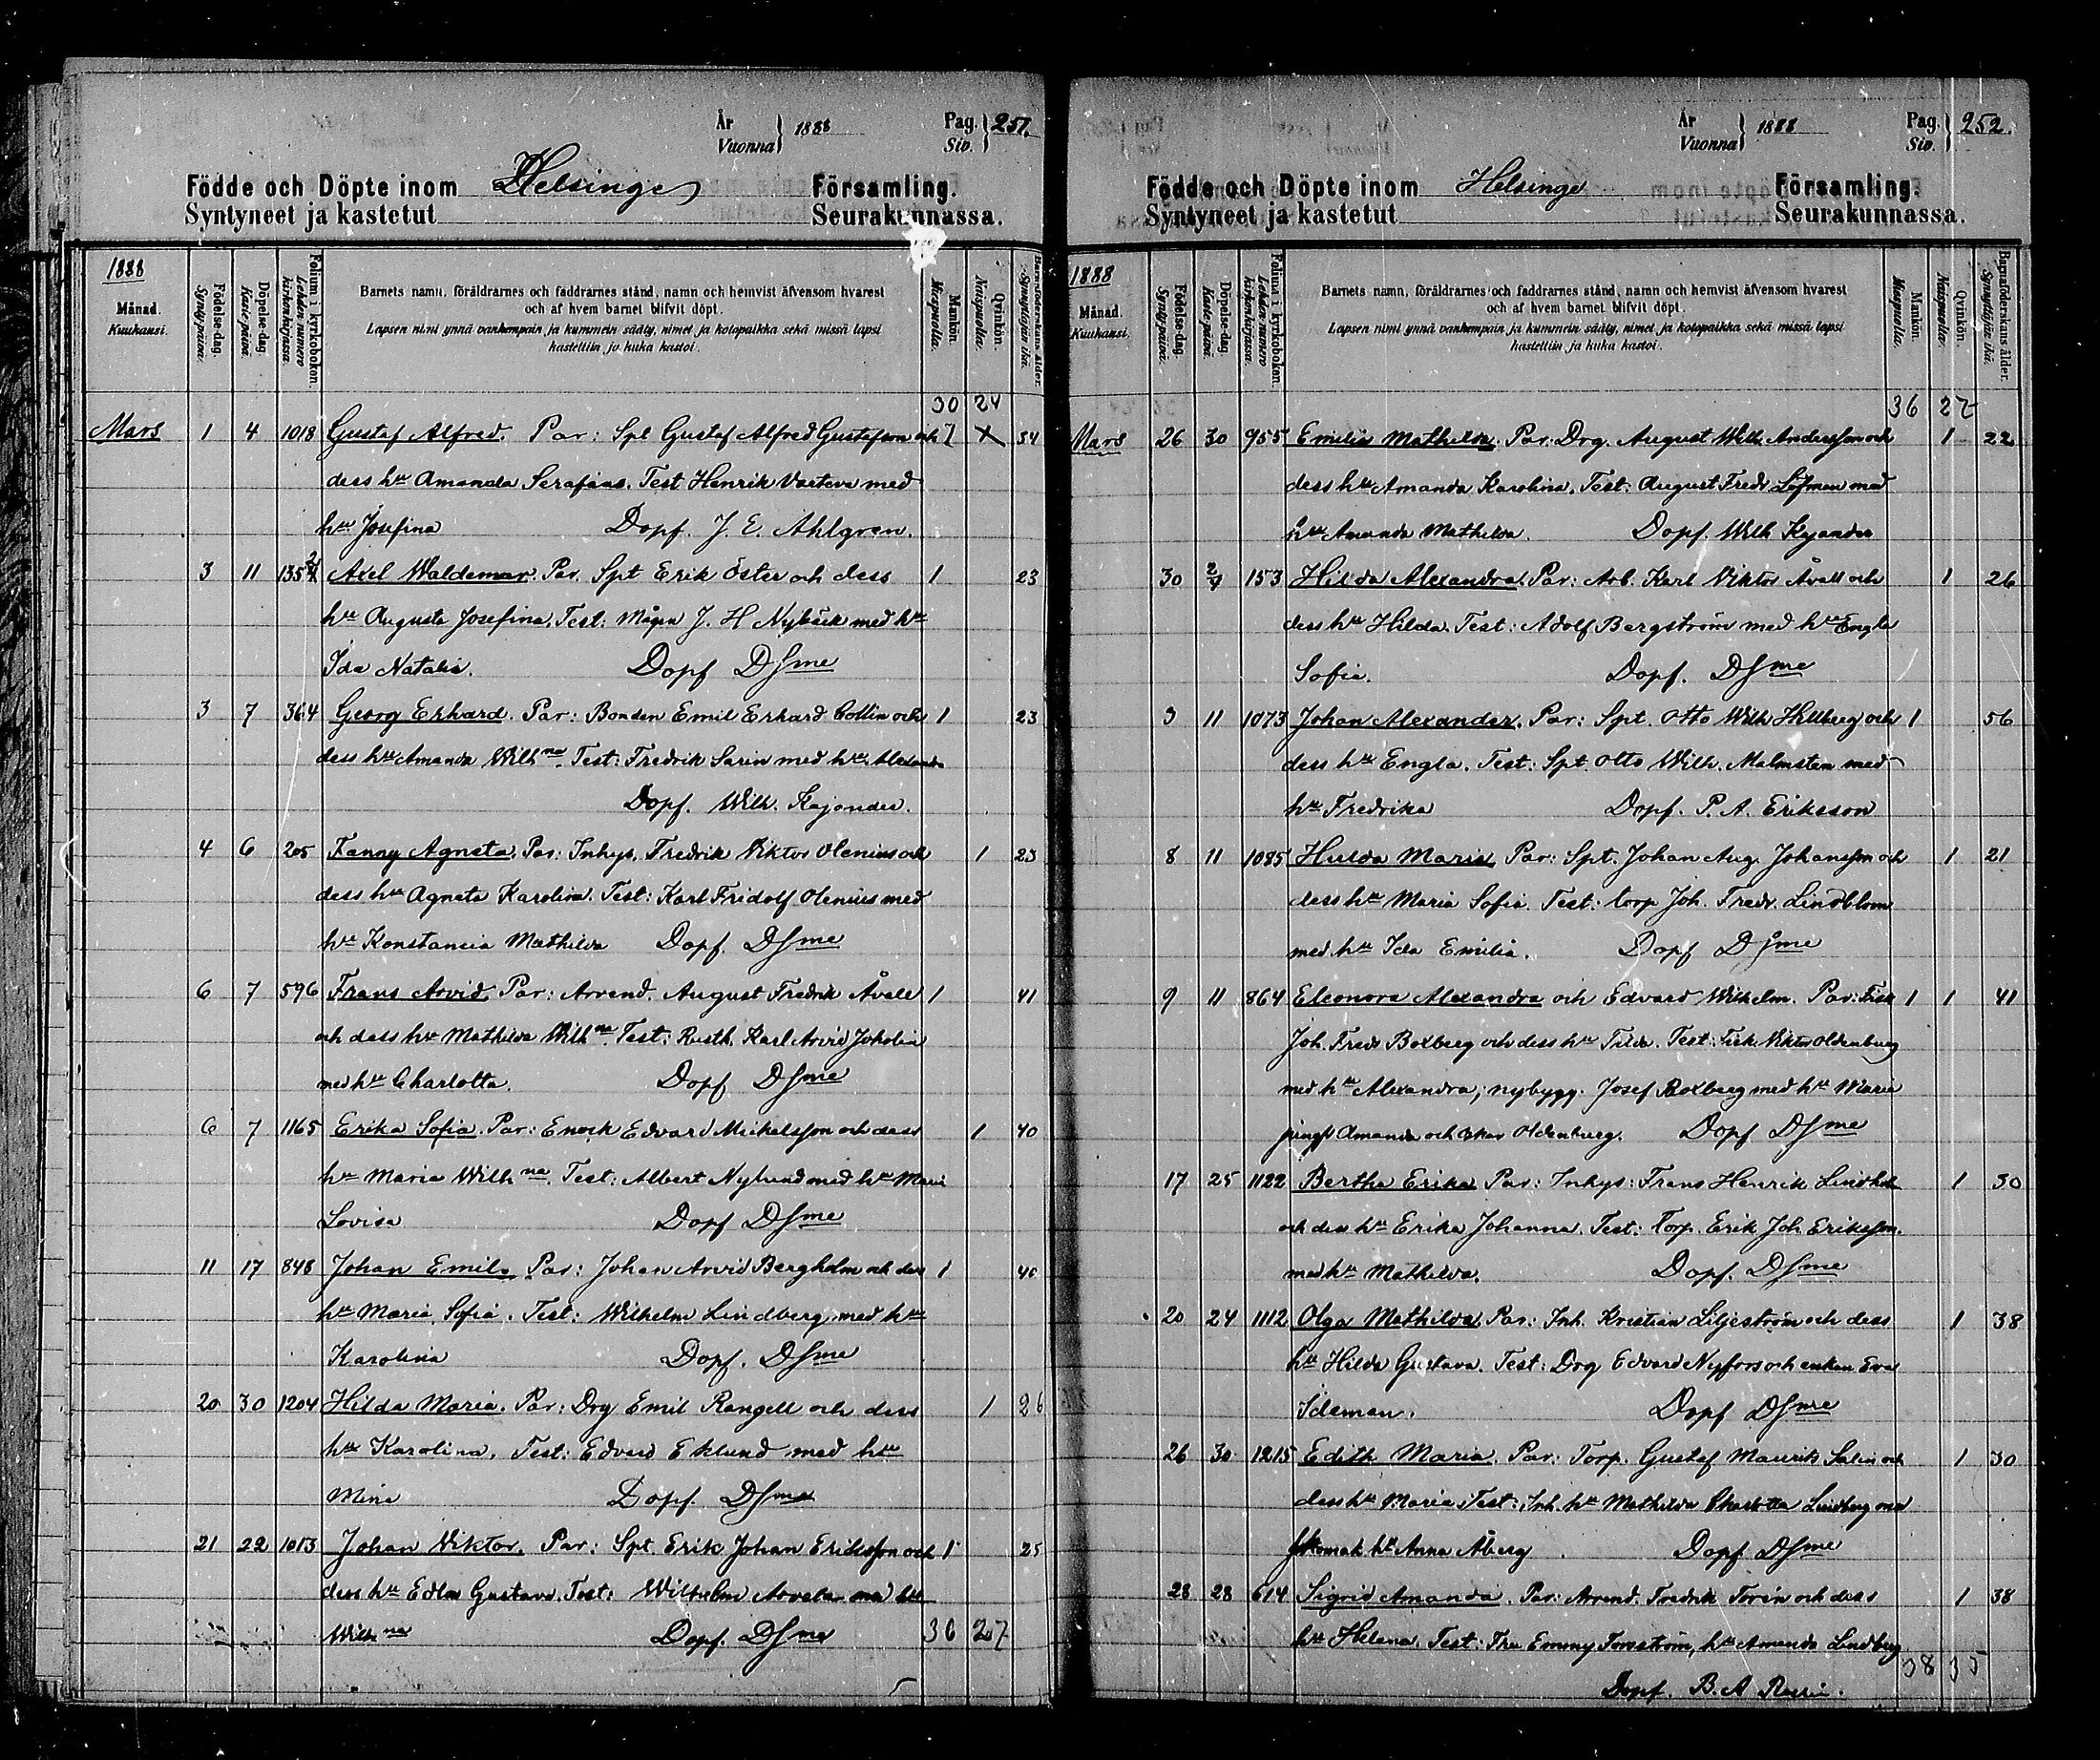 År
Vuonna } 1888
Pag.
Siv. } 251.
Födde och Döpte inom Helsinge Församling.
Syntyneet ja kastetut Seurakunnassa.
1888
Månad.
Kuukausi.
Födelse-dag.
Syntypäivä.
Döpelse-dag.
Kaste-päivä.
Folium i kyrkoboken.
Lehden numero kirkonkirjassa.
Barnets namn, föräldrarnes och faddrarnes stånd, namn och hemvist äfvensom hvarest
och af hvem barnet blifvit döpt.
Lapsen nimi ynnä vanhempain ja kummein sääty, nimet ja kotopaikka sekä missä lapsi
kastettiin ja kuka kastoi.
Mankön.
Miespuolia.
Qvinkön.
Naispuolia.
Barnaföderskans ålder.
Synnyttäjän ikä.
30 24
Mars 1 4 1018 Gustaf Alfred. Par: Spt Gustaf Alfred Gustafsson och 1 34
dess hu Amanda Serafina. Test Henrik Vasteve med
hu Josefina Dopf. J. E. Ahlgren.
3 11 135 Axel Waldemar. Par. Spt Erik Öster och dess 1 23
hu Augusta Josefina. Test: Mågen J. H Nybäck med hu
Ida Natalia. Dopf DSme
3 7 364 Georg Erhard. Par: Bonden Emil Erhard Collin och 1 23
dess hu Amanda Wilhna. Test: Fredrik Sarin med hu Alexandra
Dopf. Wilh. Kajander.
4 6 205 Fanny Agneta. Par: Inhys. Fredrik Viktor Olenius och 1 23
dess hu Agneta Karolina. Test: Karl Fridolf Olenius med
hu Konstancia Mathilda Dopf. DSme
6 7 596 Frans Arvid. Par: Arrend. August Fredrik Åvall 1 41
och dess hu Mathilda Wilhna. Test: Rusth. Karl Arvid Jokolin
med hu Charlotta. Dopf DSme
6 7 1165 Erika Sofia. Par: Enock Edvard Mickelsson och dess 1 40
hu Maria Wilhna. Test: Albert Nylund med hu Maria
Lovisa Dopf DSme
11 17 848 Johan Emil. Par: Johan Arvid Bergholm och dess 1 40
hu Maria Sofia. Test: Wilhelm Lindberg med hu
Karolina Dopf. DSme
20 30 1204 Hilda Maria. Par: Drg Emil Rangell och dess 1 26
hu Karolina. Test: Edvard Eklund med hu
Mina Dopf. DSme
21 22 1013 Johan Viktor. Par: Spt Erik Johan Eriksson och 1 25
dess hu Edla Gustava. Test: Wilhelm Arvelan med hu
Wilhna Dopf. DSme 36 27
År
Vuonna } 1888
Pag.
Siv. } 252.
Födde och Döpte inom Helsinge Församling.
Syntyneet ja kastetut Seurakunnassa.
1888
Månad.
Kuukausi.
Födelse-dag.
Syntypäivä.
Döpelse-dag.
Kaste-päivä.
Folium i kyrkoboken.
Lehden numero kirkonkirjassa.
Barnets namn, föräldrarnes och faddrarnes stånd, namn och hemvist äfvensom hvarest
och af hvem barnet blifvit döpt.
Lapsen nimi ynnä vanhempain ja kummein sääty, nimet ja kotopaikka sekä missä lapsi
kastettiin ja kuka kastoi.
Mankön.
Miespuolia.
Qvinkön.
Naispuolia.
Barnaföderskans ålder.
Synnyttäjän ikä.
36 27
Mars 26 30 955 Emilia Mathilda. Par: Drg. August Wilh. Andersson och 1 22
dess hu Amanda Karolina. Test: August Fredr Löfman med
hu Amanda Mathilda. Dopf. Wilh Kajander
30 2/4 153 Hilda Alexandra. Par: Arb. Karl Viktor Åvall och 1 26
dess hu Hilda. Test: Adolf Bergström med hu Engla
Sofia. Dopf. DSme
3 11 1073 Johan Alexander. Par: Spt. Otto Wilh Hellberg och 1 56
dess hu Engla. Test: Spt. Otto Wilh. Malmsten med
hu Fredrika Dopf. P. A. Eriksson
8 11 1085 Hulda Maria. Par: Spt. Johan Aug. Johansson och 1 21
dess hu Maria Sofia. Test: torp Joh. Fredr. Lindblom
med hu Ida Emilia. Dopf DSme
9 11 864 Eleonora Alexandra och Edvard Wilhelm. Par: Fisk 1 1 41
Joh. Fredr Boxberg och dess hu Tilda. Test: Fisk. Viktor Oldenburg
med hu Alexandra, nybygg. Josef Boxberg med hu Maria
pingf Amanda och Oskar Oldenburg. Dopf DSme
17 25 1122 Bertha Erika Par: Inhys: Frans Henrik Lindholm 1 30
och dess hu Erika Johanna. Test: Torp. Erik Joh. Eriksson.
med hu Mathilda. Dopf. DSme
20 24 1112 Olga Mathilda. Par: Inh. Kristian Liljeström och dess 1 38
hu Hilda Gustava. Test: Drg Edvard Nyfors och enkan Eva
Ideman. Dopf DSme
26 30 1215 Edith Maria. Par: Torp. Gustaf Maurits Salin och 1 30
dess hu Maria. Test: Inh. hu Mathilda Charlotta Lindberg med
hu Anna Åberg. Dopf DSme
28 28 614 Sigrid Amanda. Par: Arrend. Fredrik Torén och dess 1 38
hu Helena. Test: Fru Emmy Forsström, hu Amanda Lindberg
38 35
Dopf. B. A